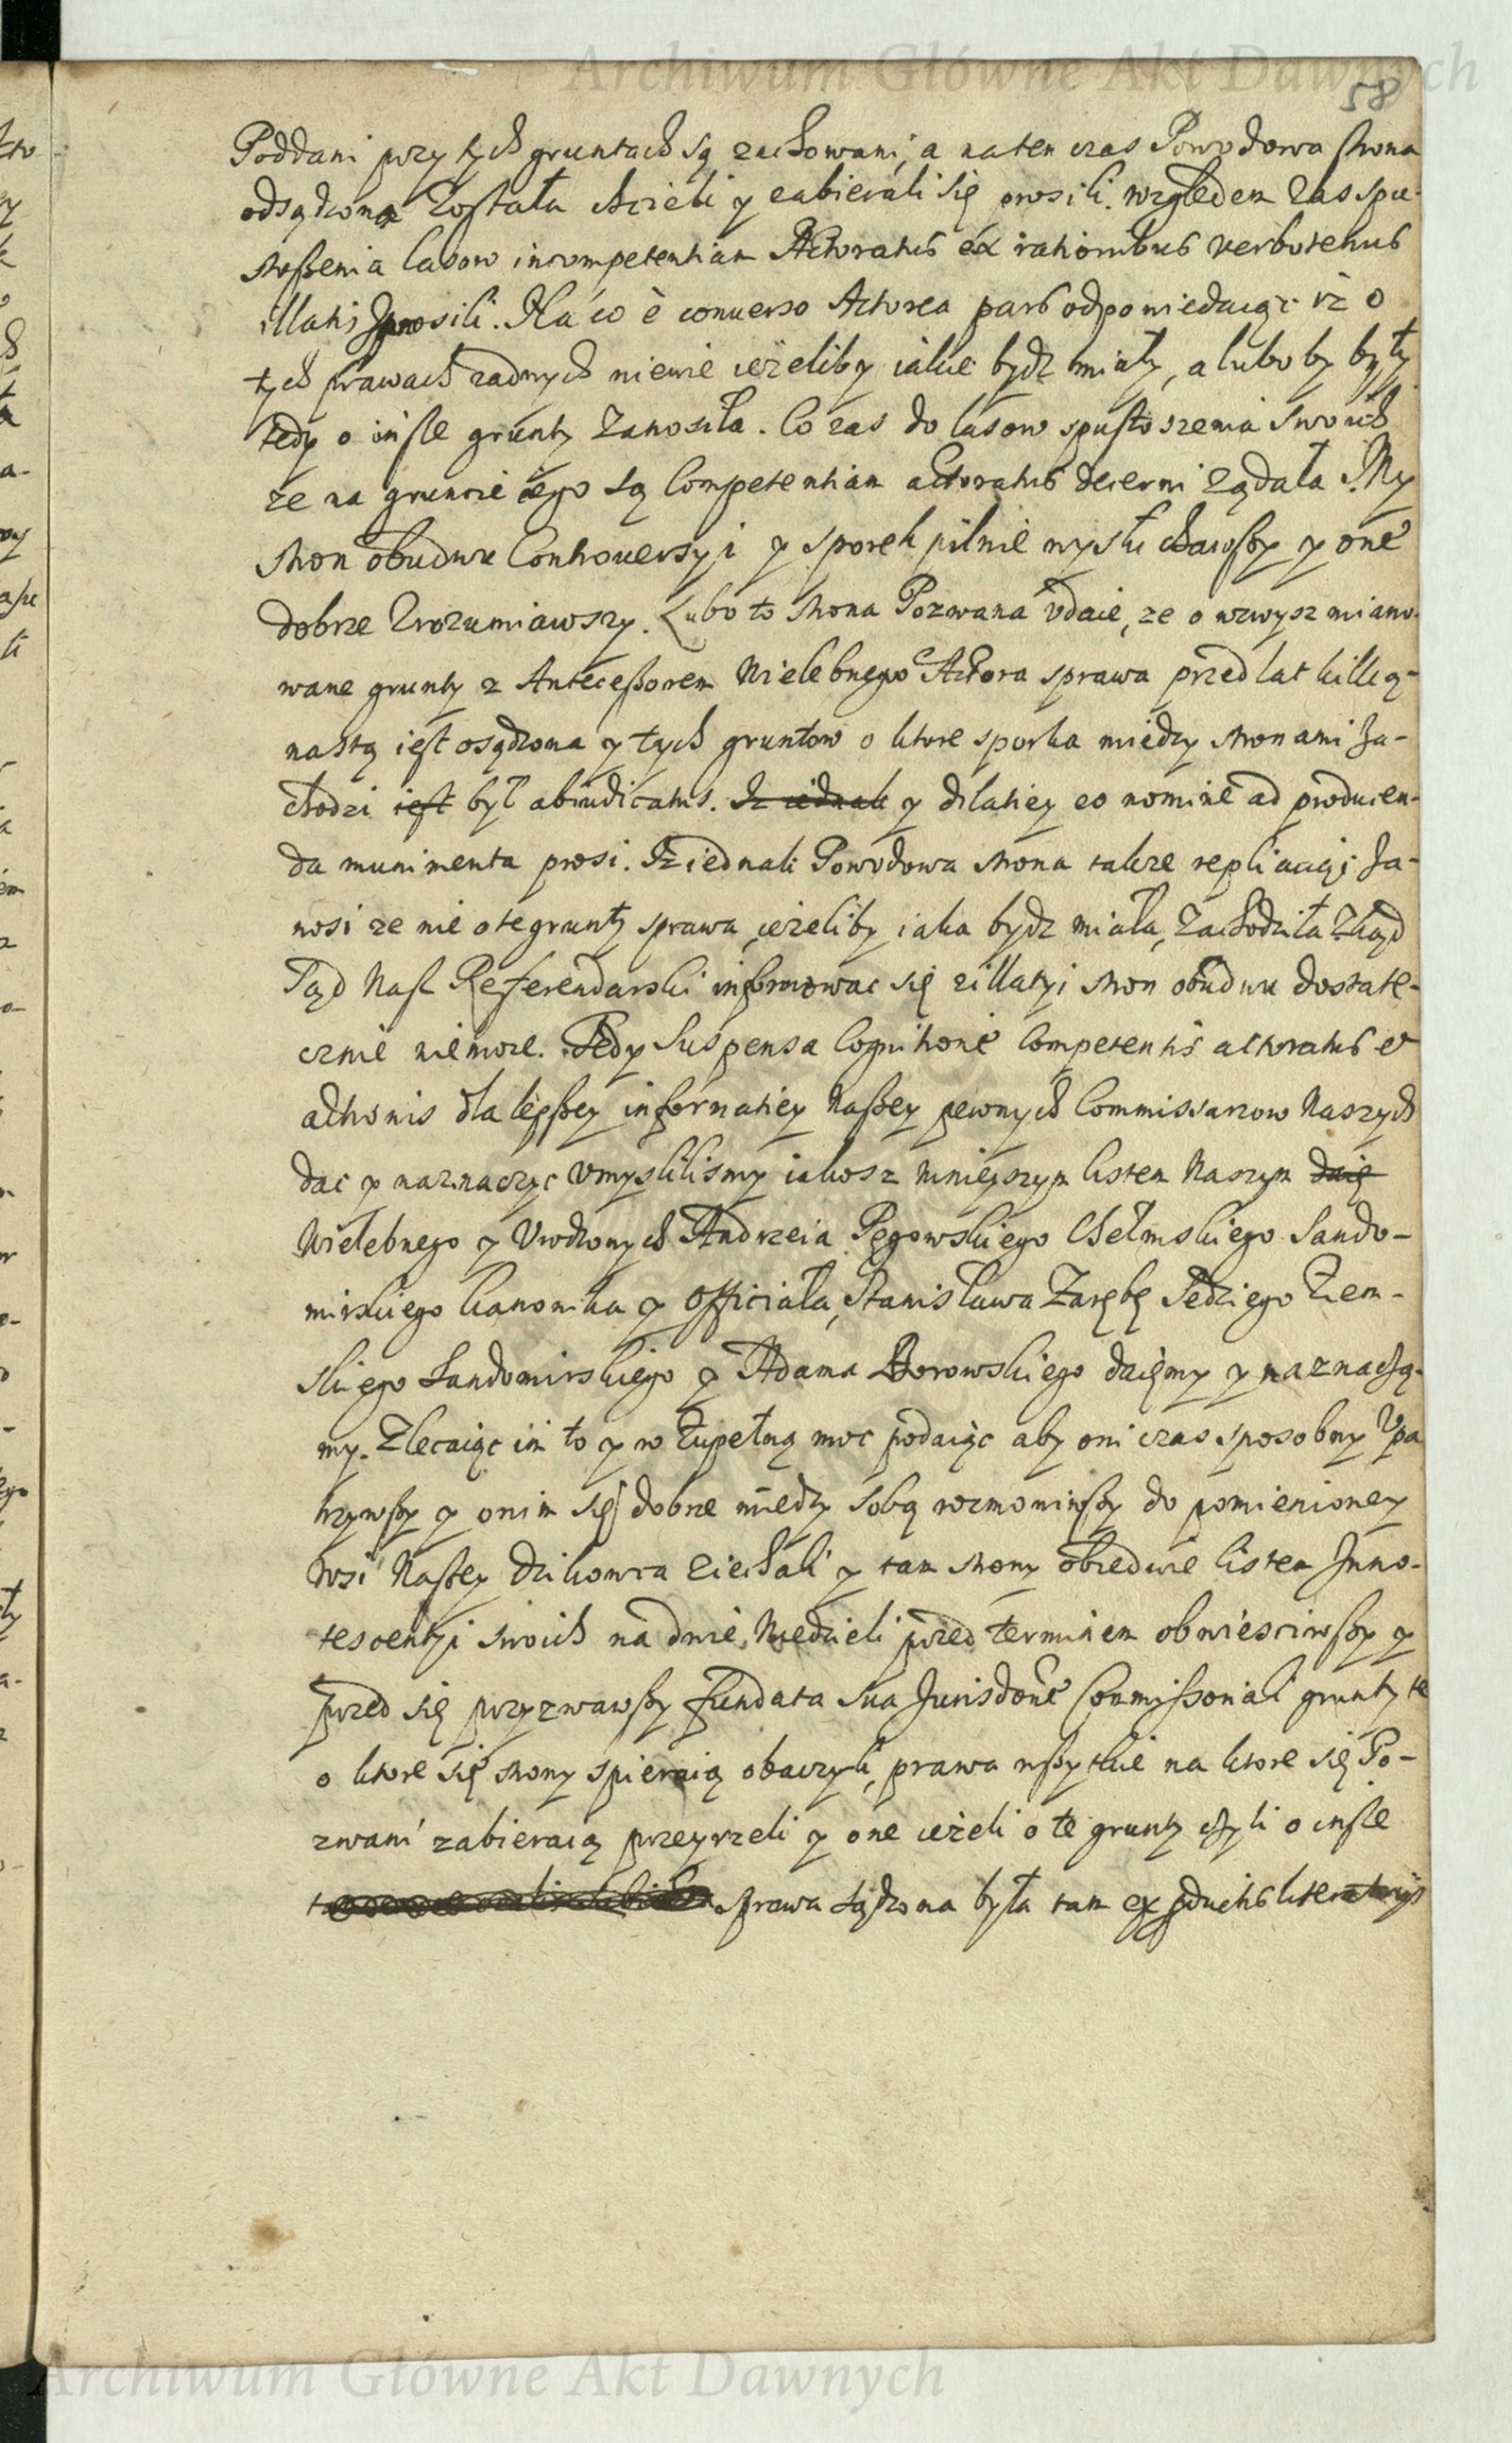 Archiwum Główne Akt Dawnych
58
Poddani przy tych gruntach są zachowani, a na ten czas Powodowa strona
odsądzona Została chcieli y zabierali się prosili. względem Zas spu-
stoszenia lasow incompetentiam Actoratus ex rationibus verbotenus
illatis prosili. Na co è conuerso Actorea pars odpowiedaiąc iż o
tych prawach zadnych niewie ieżeliby iakie bydz miały, a lubo by były
tedy o insze grunty Zanosiła. Co zas do lasow spustoszenia swoich
ze na gruncie iego są Competentiam actoratus decerni ządała. My
stron obudwu Controuersyi y sporek pilnie wysłuchawszy y one
dobrze Zrozumiawszy. Lubo to strona Pozwana vdaie, ze o wzwysz miano-
wane grunty z Antecessorem Wielebnego Aktora sprawa przed lat kilką-
nastą iest osądzona y tych gruntow o ktore sporka miedzy stronami Za-
chodzi iest był abiudicatus. Iz iednak y dilatiey eo nomine ad producen-
da munimenta prosi. Iż iednak Powodowa strona takze replicacię Za-
nosi ze nie o te grunty sprawa ieżeliby iaka bydz miała, Zachodziła Zkąd
Sąd Nasz Referendarski informowac się z illatyi stron obudwu dostate-
cznie niemoze. Tedy Suspensa Cognitione Competentis actoratus et
actionis dla lepszey informatiey Naszey pewnych Commissarzow Naszych
dac y naznaczyc vmyslilismy iakosz ninieyszym listem Naszym daię
Wielebnego y Vrodzonych Andrzeia Pęgowskiego Chełmskiego Sando-
mirskiego Kanonika y Officiała, Stanisława Zarębę Sędziego Ziem-
skiego Sandomirskiego y Adama Borowskiego daięmy y naznaczą-
my. Zlecaiąc im to y w Zupełną moc podaiąc aby oni czas sposobny Vpa
trzywszy y onim się dobrze miedzy sobą rozmowiwszy do pomienioney
Wsi Naszey Dzikowca ziechali y tam strony obiedwie listem Inno-
tescentyi swoich na dwie Niedzieli przed terminem obwiesciwszy y
przed się przyzwawszy fundata sua Jurisdone Commissoriali grunty te
o ktore się strony spieraią obaczyli, prawa wszytkie na ktore się Po-
zwani zabieraią przeyrzeli y one ieżeli o te grunty czyli o insze
sprawa sądzona była tam ex
Archiwum Główne Akt Dawnych